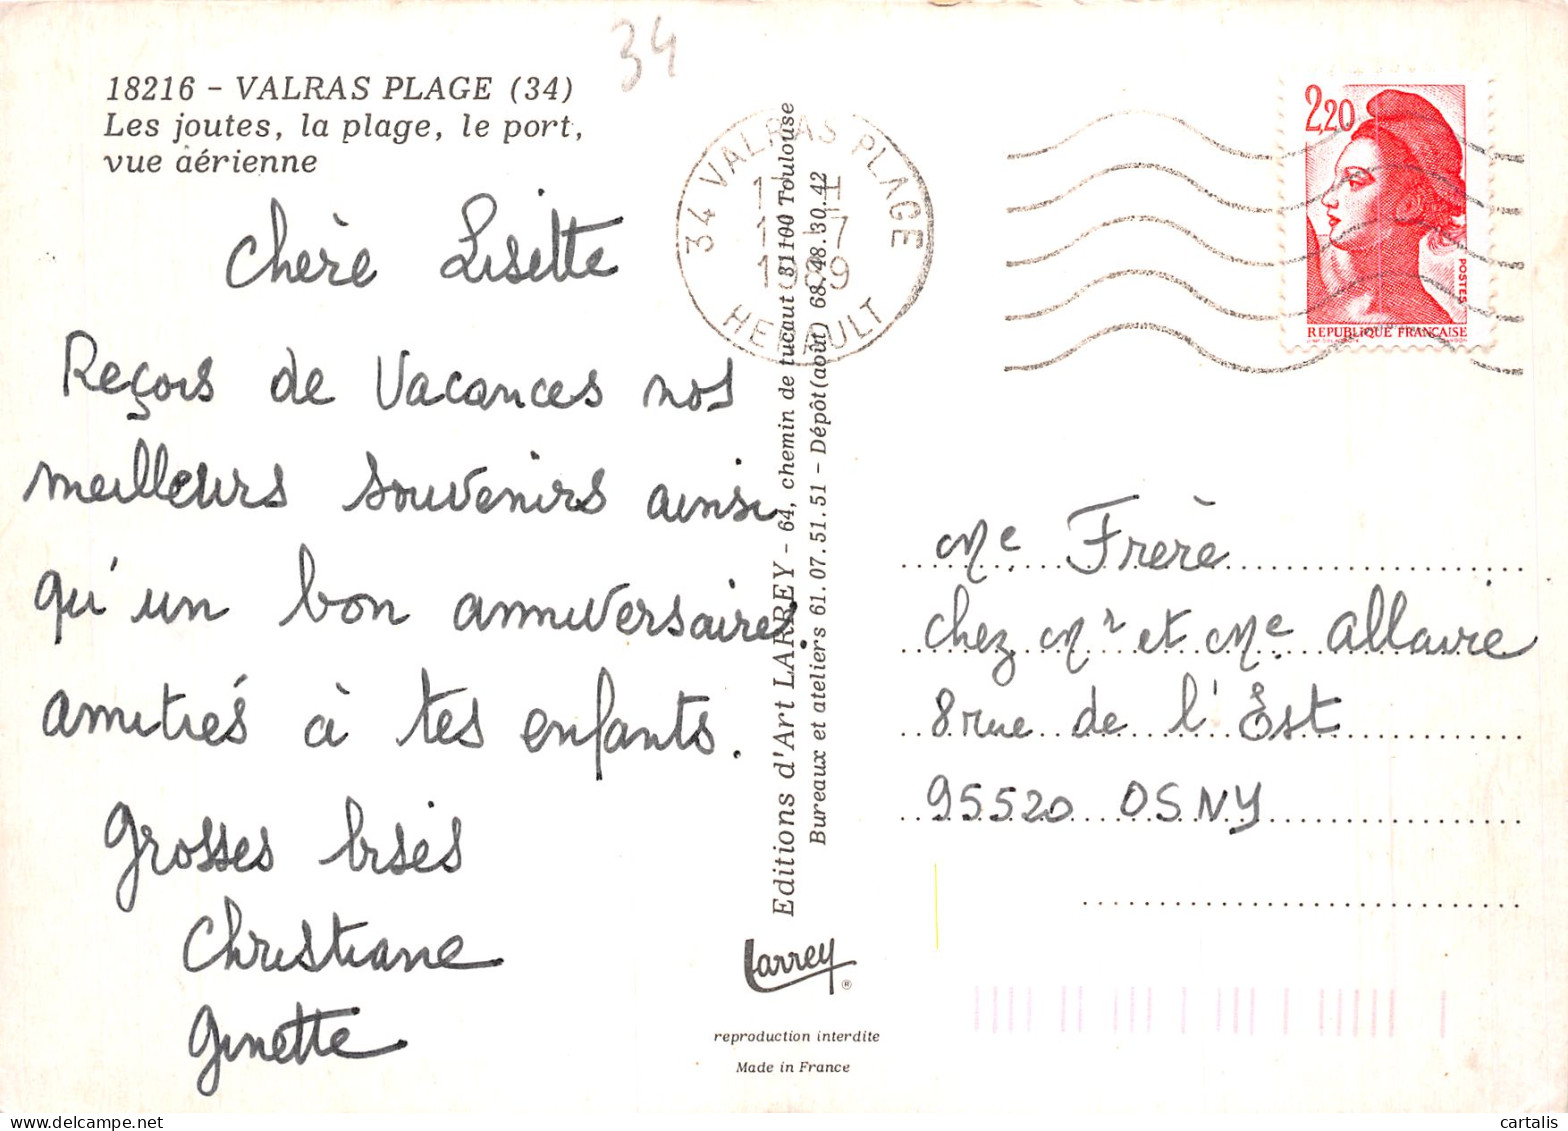 34
18216 - VALRAS PLAGE (34)
Les joutes, la plage, le port,
vue aérienne
Chère Lisette
Reçois de Vacances nos
meilleurs souvenirs ainsi
qu'un bon anniversaire.
amitiés à tes enfants.
Grosses bises
Christiane
Ginette
34 VALRAS PLAGE
HERAULT
Editions d'Art LARREY - 64, chemin de tucaut 31100 Toulouse
Bureaux et ateliers 61.07.51.51 - Dépôt (août) 68.48.30.42
Larrey ®
reproduction interdite
Made in France
2,20
POSTES
REPUBLIQUE FRANÇAISE
Me Frère
chez Mr et Me Allaire
8 rue de l'Est
95520 OSNY
cartalis